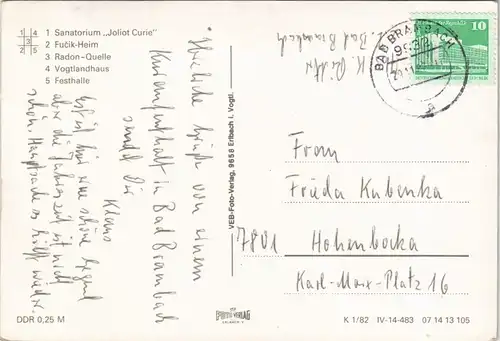 1 Sanatorium „Joliot Curie"
2 Fučik-Heim
3 Radon-Quelle
4 Vogtlandhaus
5 Festhalle
Herzliche Grüße von einem
Kuraufenthalt in Bad Brambach
sendet Dir
Klaus
Es ist hier eine schöne Gegend
aber die Jahreszeit ist nicht
schön. Hauptsache es hilft wieder.
Bad Brambach
VEB-Foto-Verlag, 9658 Erlbach i. Vogtl.
10
BAD BRAMBACH
9932
Frau
Frieda Kubenka
7801 Hohenbocka
Karl-Marx-Platz 16
DDR 0,25 M
FOTO VERLAG
K 1/82 IV-14-483 07 14 13 105